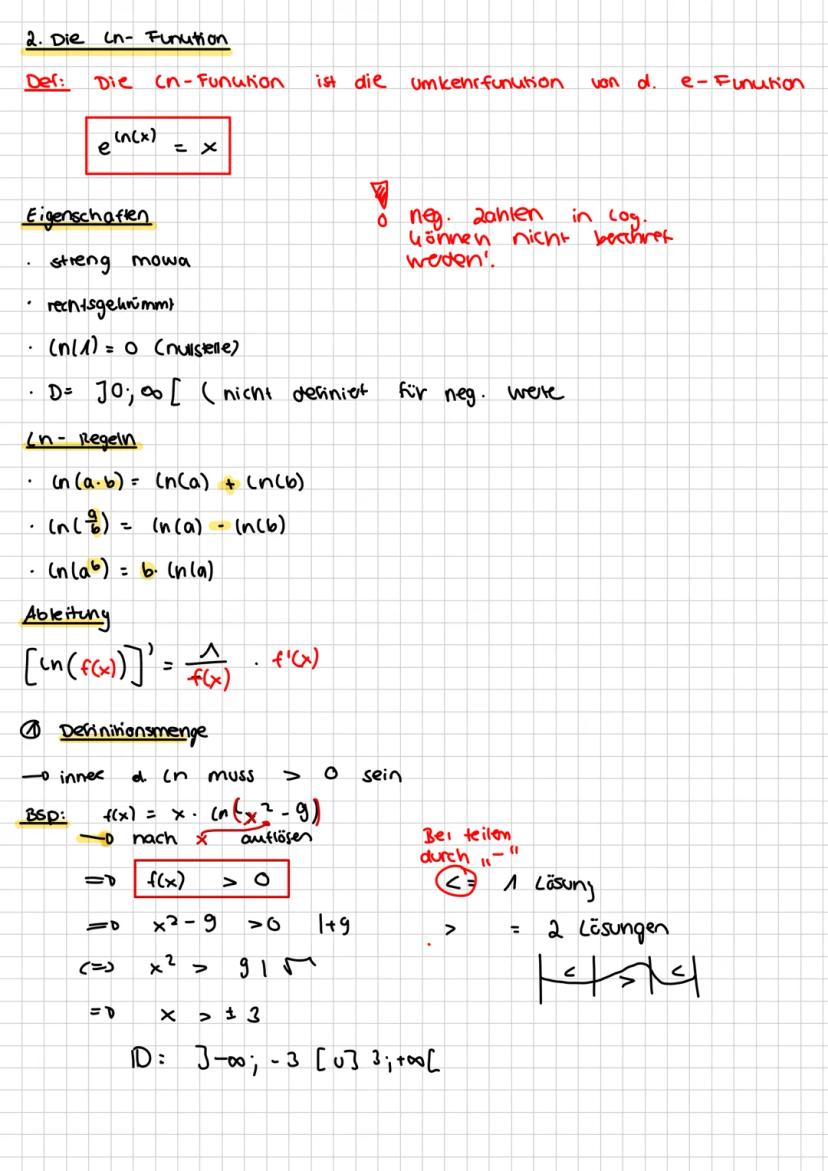 2. Die Ln- Funktion
Def: Die Ln-Funktion ist die Umkehrfunktion von d. e-Funktion
e^ln(x) = x
Eigenschaften
! neg. Zahlen in Log.
können nicht berchnet
weden!
· streng mowa
· rechtsgekrümmt
· ln(1) = 0 (Nullstelle)
· D= ]0; ∞[ ( nicht definiert für neg. Werte
Ln- Regeln
· ln(a·b) = ln(a) + ln(b)
· ln(a/b) = ln(a) - ln(b)
· ln(a^b) = b· ln(a)
Ableitung
[ln(f(x))]' = 1/f(x) · f'(x)
① Definitionsmenge
→ innee d. ln muss > 0 sein
Bsp: f(x) = x · ln(x² - 9)
→ nach x auflösen
Bei teilen
durch „-"
=> f(x) > 0
< = 1 Lösung
=> x² - 9 > 0 |+9
> = 2 Lösungen
<=> x² > 9 | √
< > <
=> x > ± 3
ID: ]-∞; -3 [ ∪ ] 3; +∞[